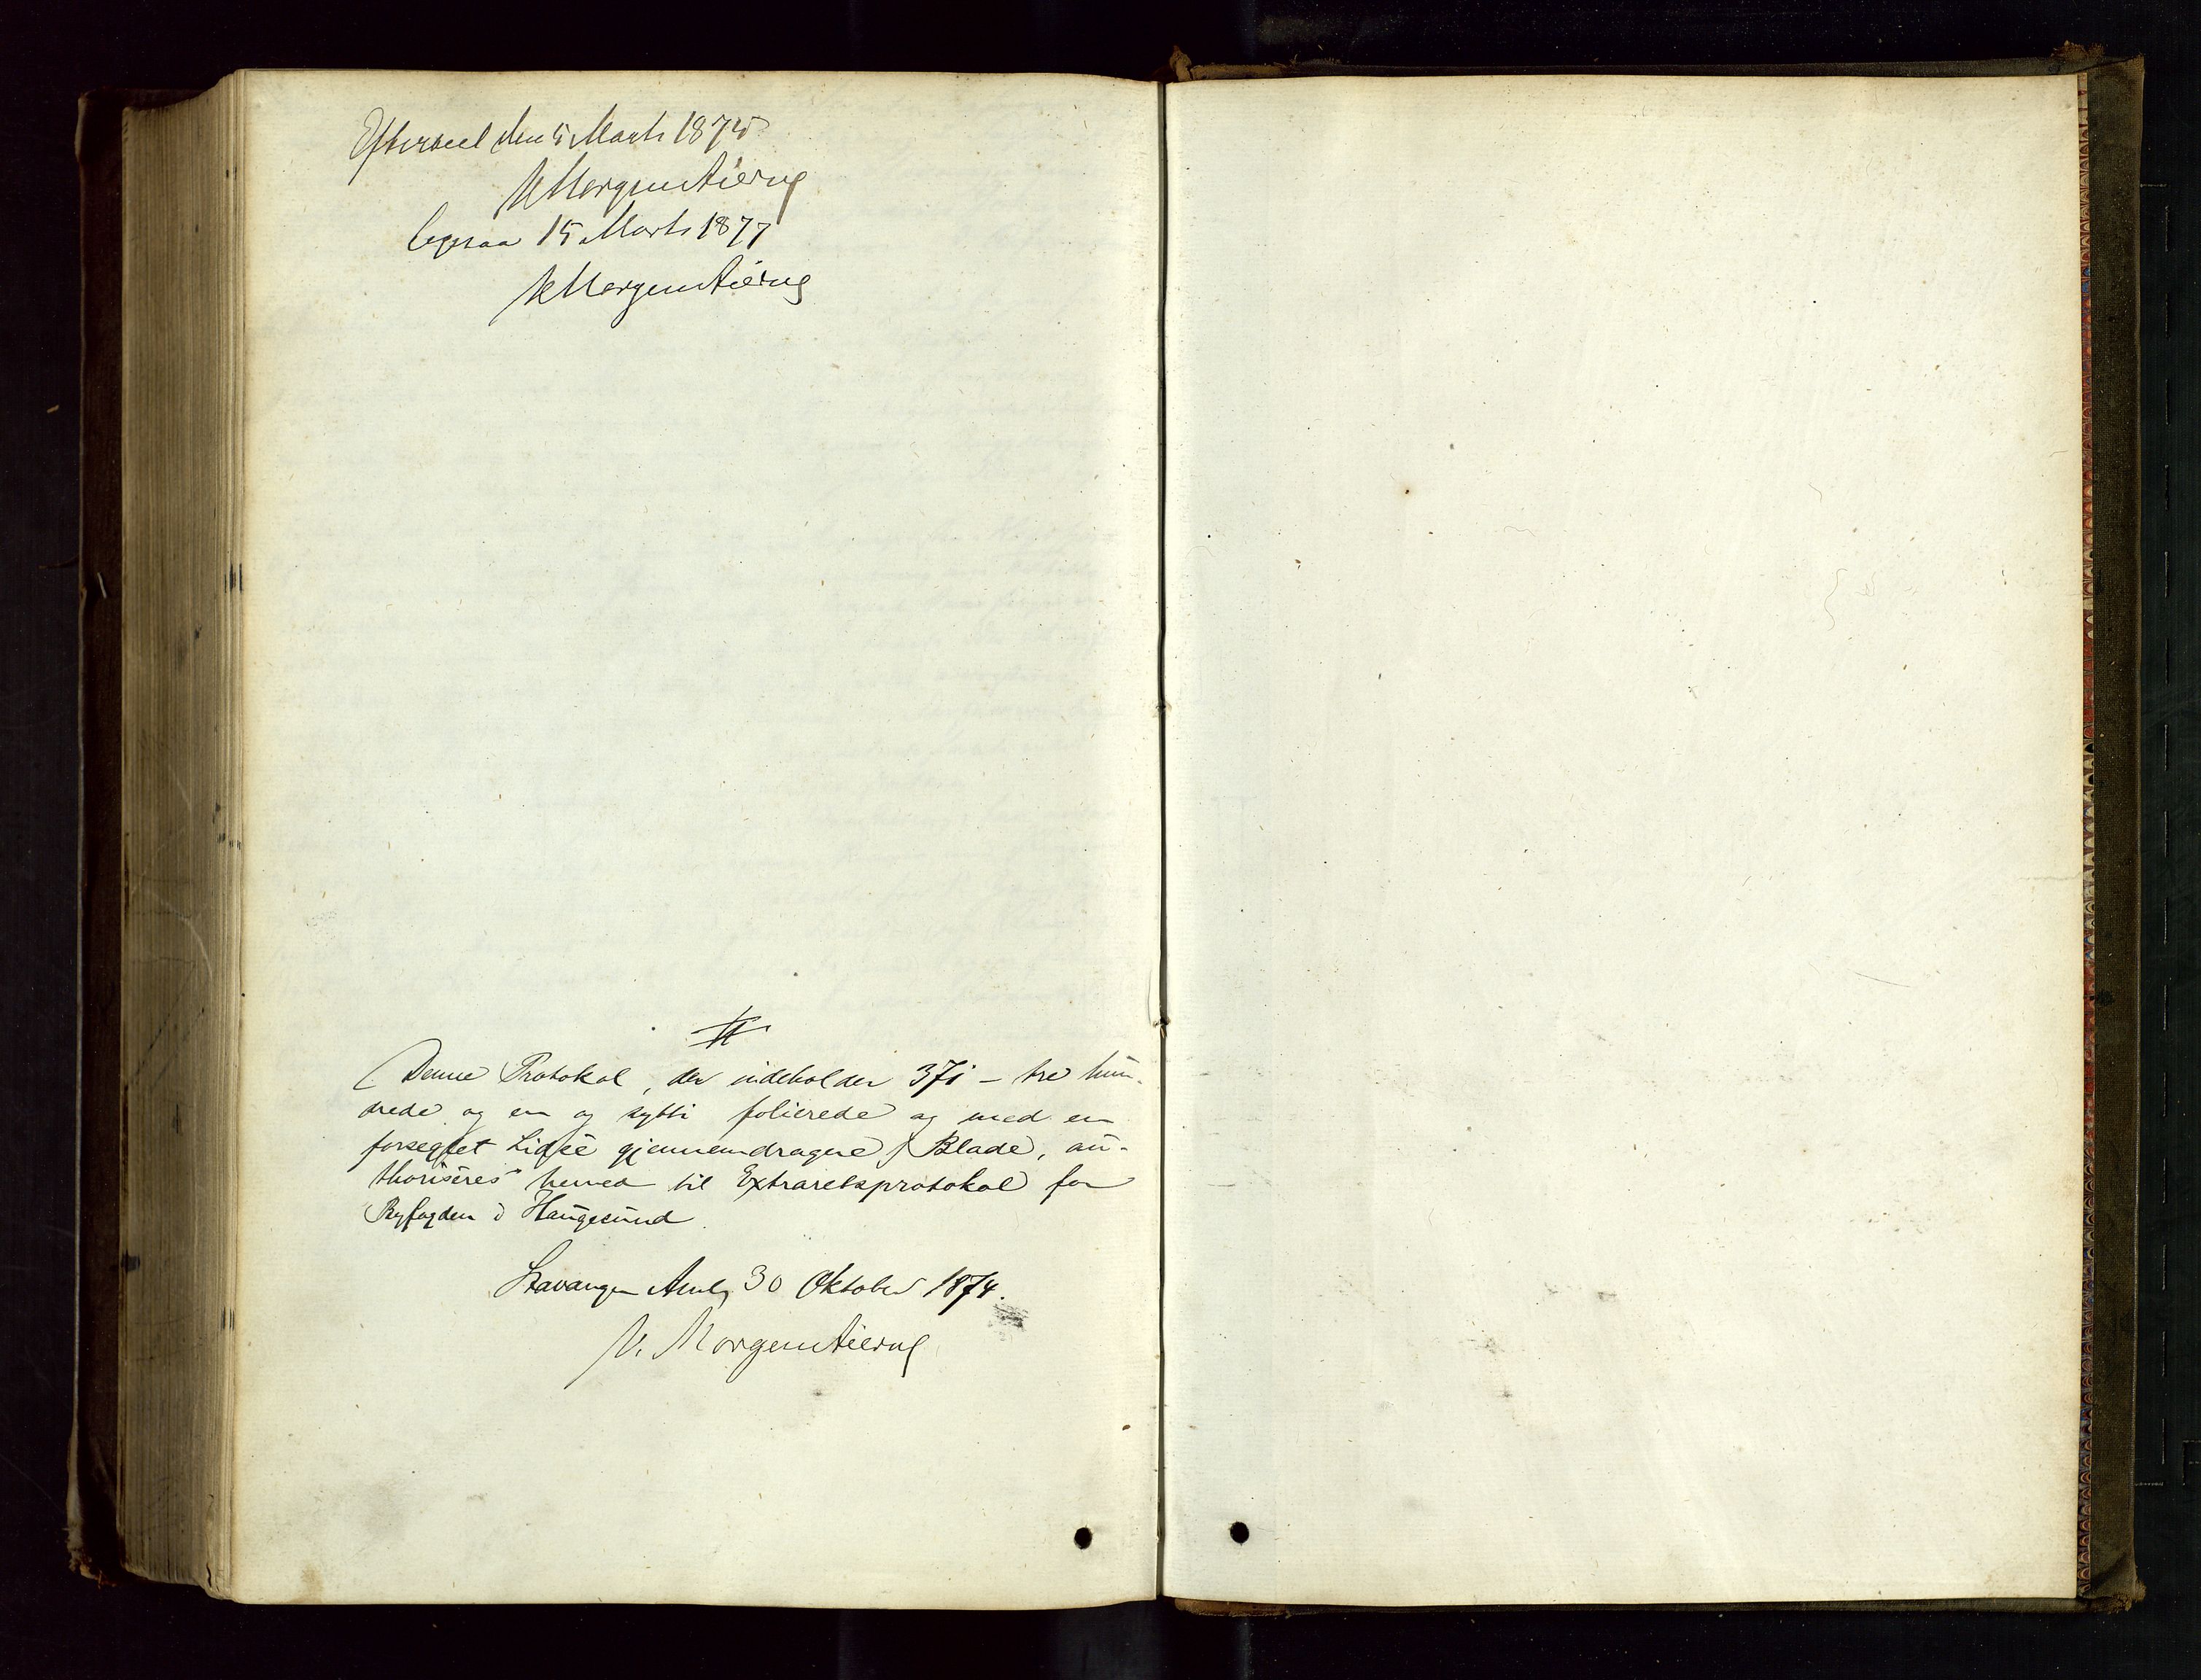 Efterseet den 5 Marts 1875
V Morgenstierne
Ligesaa 15 Marts 1877
V Morgenstierne
Denne Protokol, der indeholder 371 – tre hun-
drede og en og sytti folierede og med en
forseglet Lidse gjennemdragne Blade, au-
thoriseres herved til Extraretsprotokol for
Byfogden i Haugesund.
Stavanger Amt, 30 Oktober 1874.
V. Morgenstierne